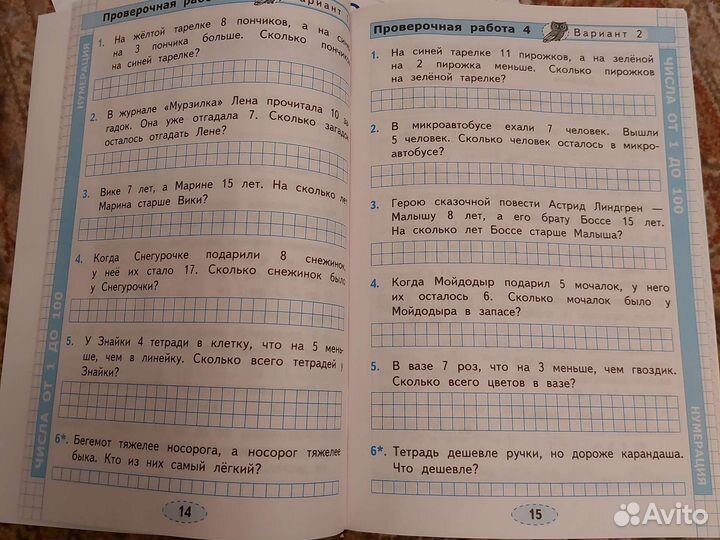 Проверочная
Вариант
НУМЕРАЦИЯ
1. На жёлтой тарелке 8 пончиков, а на
на 3 пончика больше. Сколько
на синей тарелке?
2. В журнале «Мурзилка» Лена прочитала 10 за
гадок. Она уже отгадала 7. Сколько загадок
осталось отгадать Лене?
3. Вике 7 лет, а Марине 15 лет. На сколько лет
Марина старше Вики?
4. Когда Снегурочке подарили 8 снежинок,
у неё их стало 17. Сколько снежинок было
у Снегурочки?
5. У Знайки 4 тетради в клетку, что на 5 мень-
ше, чем в линейку. Сколько всего тетрадей у
Знайки?
6*. Бегемот тяжелее носорога, а носорог тяжелее
быка. Кто из них самый лёгкий?
ЧИСЛА ОТ 1 ДО 100
14
Проверочная работа 4
Вариант 2
1. На синей тарелке 11 пирожков, а на зелёной
на 2 пирожка меньше. Сколько пирожков
на зелёной тарелке?
2. В микроавтобусе ехали 7 человек. Вышли
5 человек. Сколько человек осталось в микро-
автобусе?
3. Герою сказочной повести Астрид Линдгрен —
Малышу 8 лет, а его брату Боссе 15 лет.
На сколько лет Боссе старше Малыша?
4. Когда Мойдодыр подарил 5 мочалок, у него
их осталось 6. Сколько мочалок было у
Мойдодыра в запасе?
5. В вазе 7 роз, что на 3 меньше, чем гвоздик.
Сколько всего цветов в вазе?
6*. Тетрадь дешевле ручки, но дороже карандаша.
Что дешевле?
ЧИСЛА ОТ 1 ДО 100
НУМЕРАЦИЯ
15
Avito